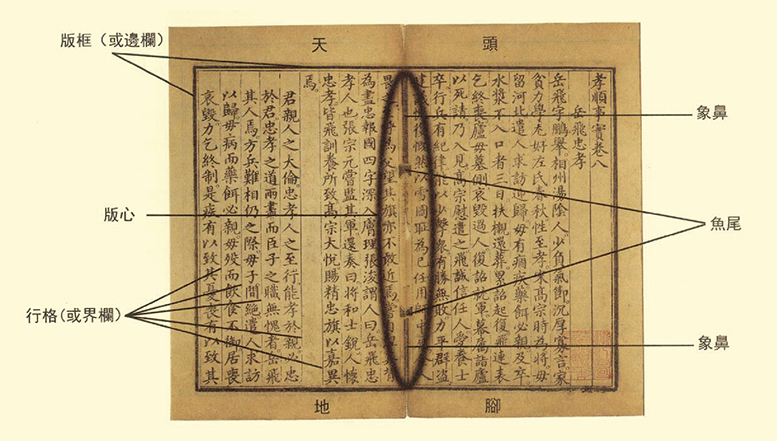 天
頭
版框（或邊欄）
象鼻
版心
魚尾
行格(或界欄)
象鼻
地
腳
孝順事實卷八
岳飛忠孝
岳飛字鵬舉相州湯陰人少負氣節沉厚寡言家
貧力學尤好左氏春秋性至孝宋高宗時為將母
留河北遣人求訪迎歸母有痼疾藥餌必親及卒
水漿不入口者三日扶櫬還葬累詔起復飛連表
乞終喪廬母墓側哀毀過人復詔就軍幕屬詣廬
以死請乃入見高宗慰遣之飛誠信任人愛養士
卒行兵有紀律能以少擊衆有勝無敗力平群盗
建議恢復慨然以雪國耻為己任用
其旗亦不敢近焉
為盡忠報國四字深入膚理張浚謂人曰岳飛忠
孝人也張宗元嘗監其軍還奏曰將和士銳人懷
忠孝皆飛訓養所致高宗大悅賜精忠旗以嘉異
焉
君親人之大倫忠孝人之至行能孝於親必忠
於君忠孝之道兩盡而臣子之職無愧者岳飛
其人焉方兵難相仍之際母子間絶遣人求訪
以歸母病而藥餌必親母殁而飲食不御居喪
哀毀力乞終制是疾有以致其憂喪有以致其